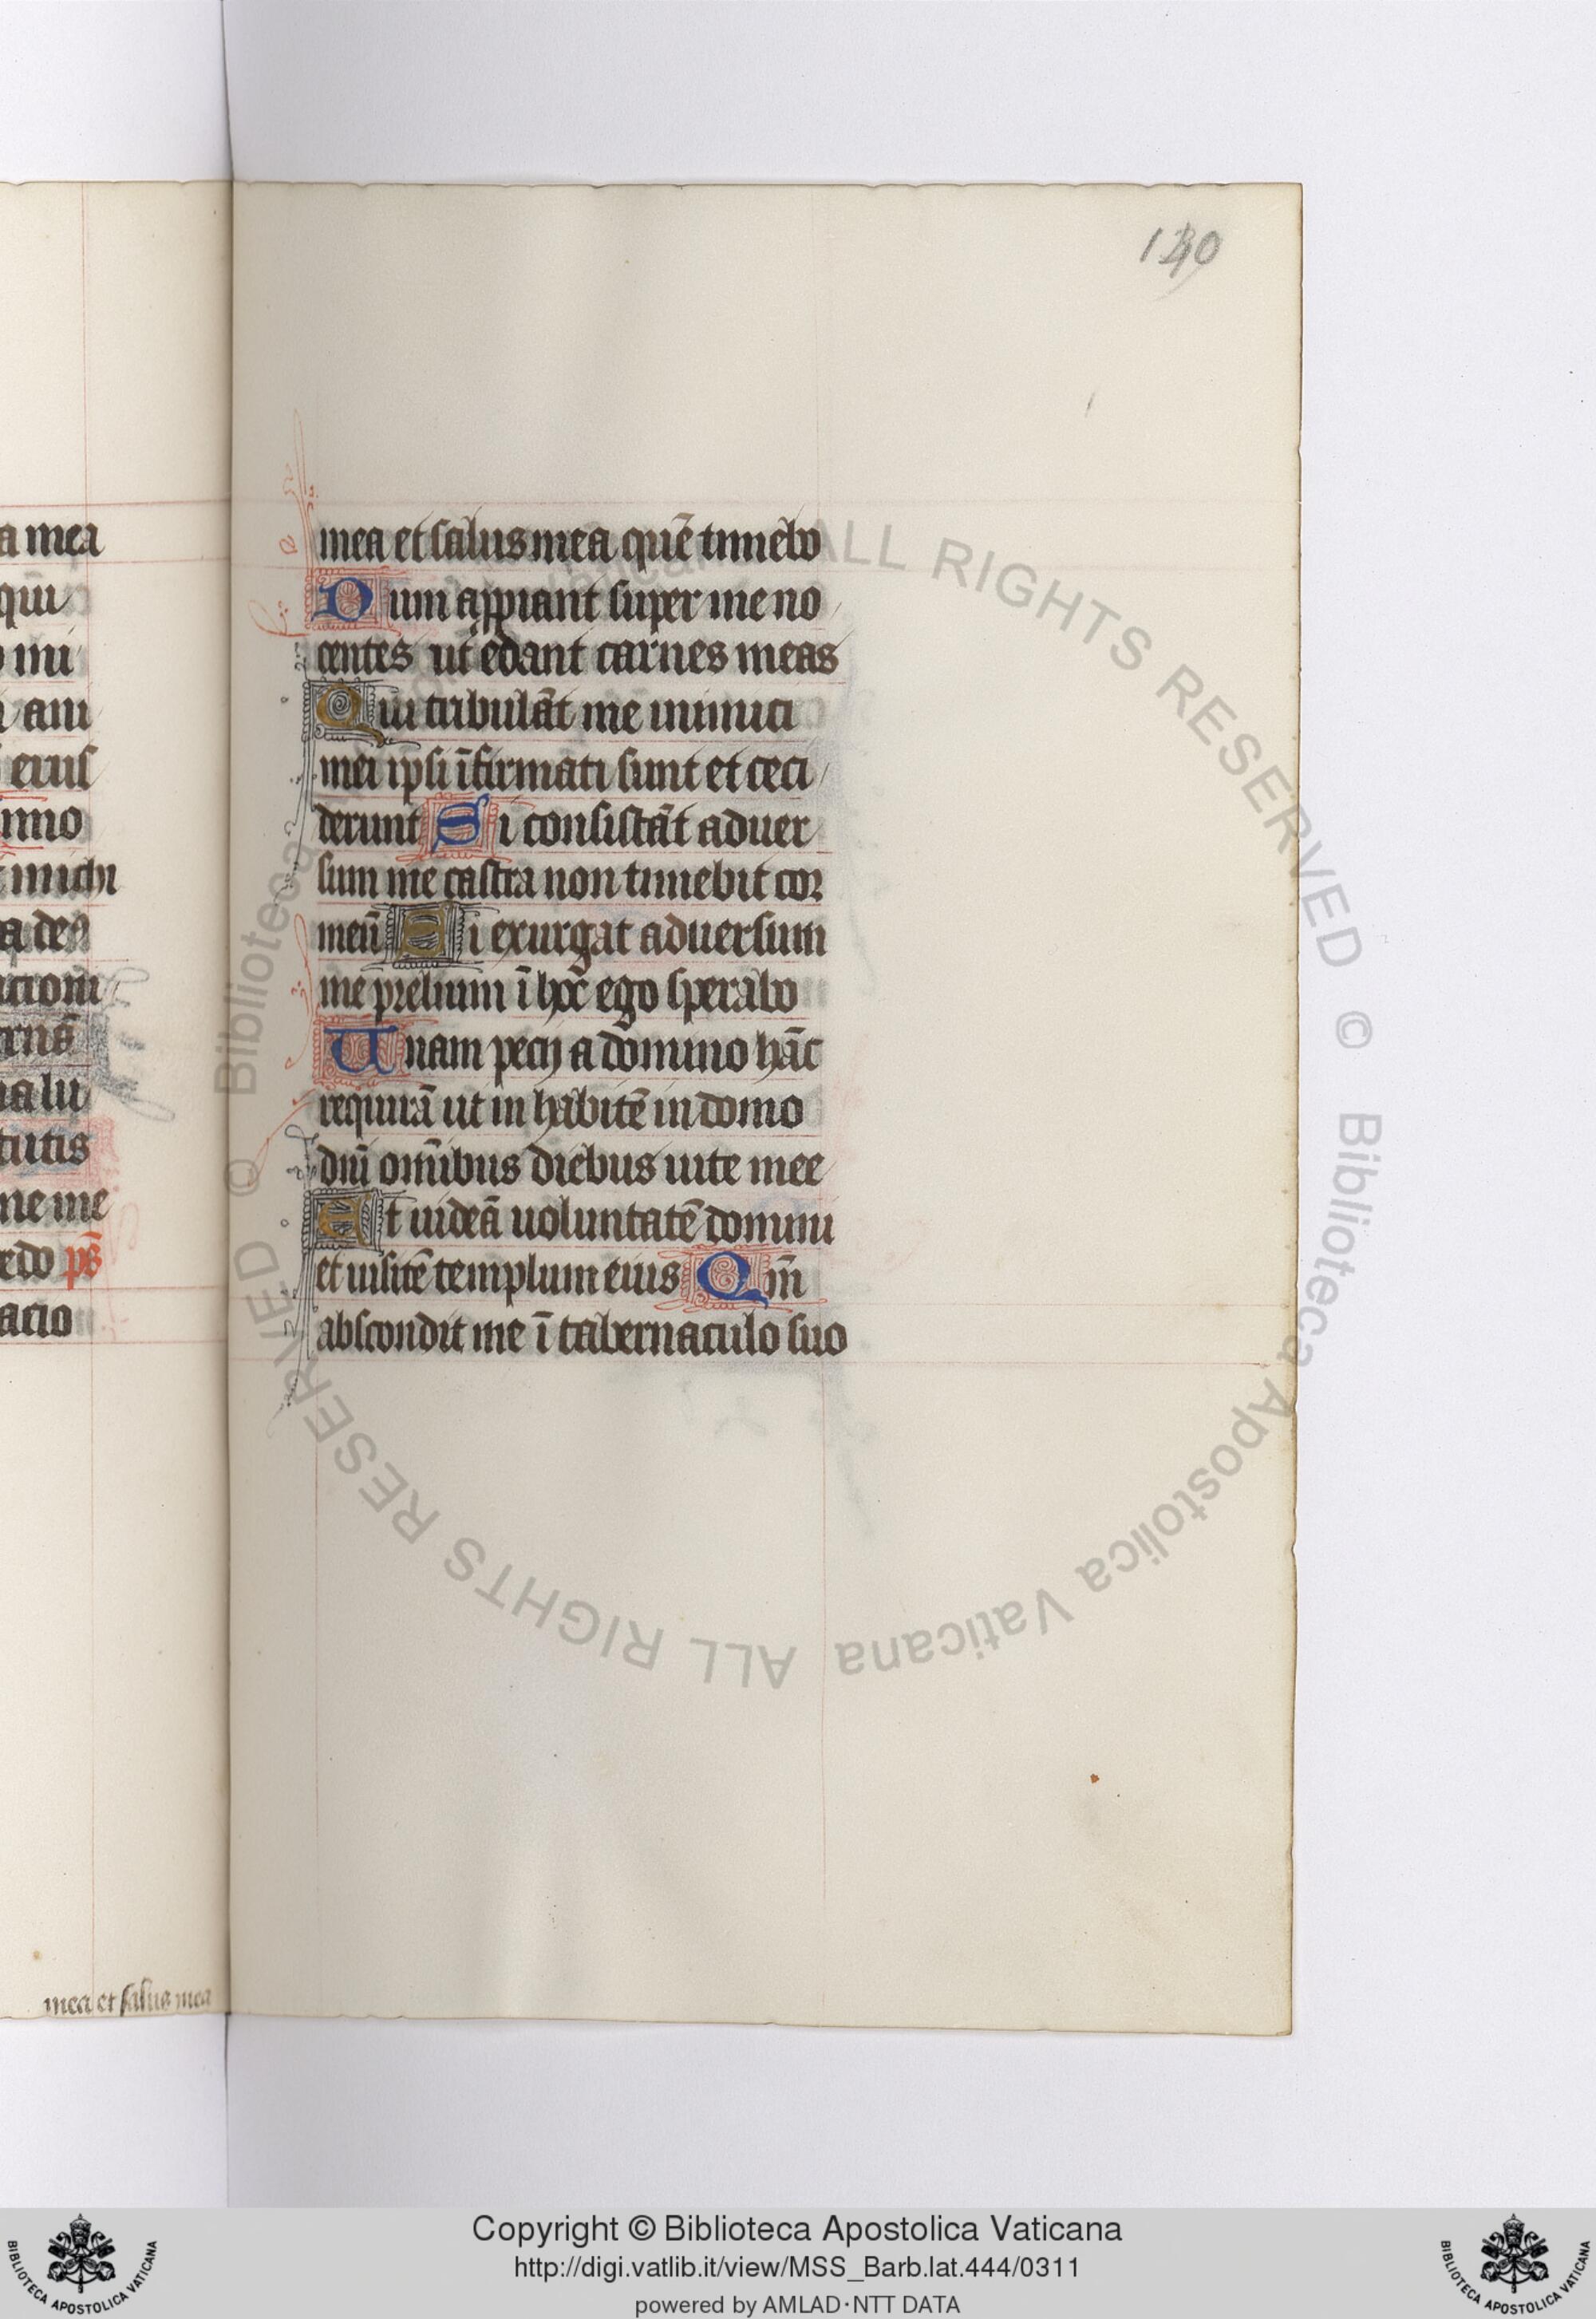 140
a mea
qui
mi
eius
michi
a de
cioni
tutis
ne me
edo ps̄
acio
mea et salus mea
mea et salus mea quē timebo
Dum appiant super me no
centes ut edant carnes meas
Qui tribulāt me inimici
mei ipsi īfirmati sunt et ceci
derunt Si consistāt aduer
sum me castra non timebit cor
meū Si exurgat aduersum
me prelium ī hoc ego sperabo
Unam pecij a domino hāc
requirā ut in habitē in domo
dn̄i om̄ibus diebus uite mee
Et uideā uoluntatē domini
et uisitē templum eius Qm̄
abscondit me ī tabernaculo suo
© Biblioteca Apostolica Vaticana ALL RIGHTS RESERVED
Copyright © Biblioteca Apostolica Vaticana
http://digi.vatlib.it/view/MSS_Barb.lat.444/0311
powered by AMLAD·NTT DATA
BIBLIOTECA APOSTOLICA VATICANA
BIBLIOTECA APOSTOLICA VATICANA